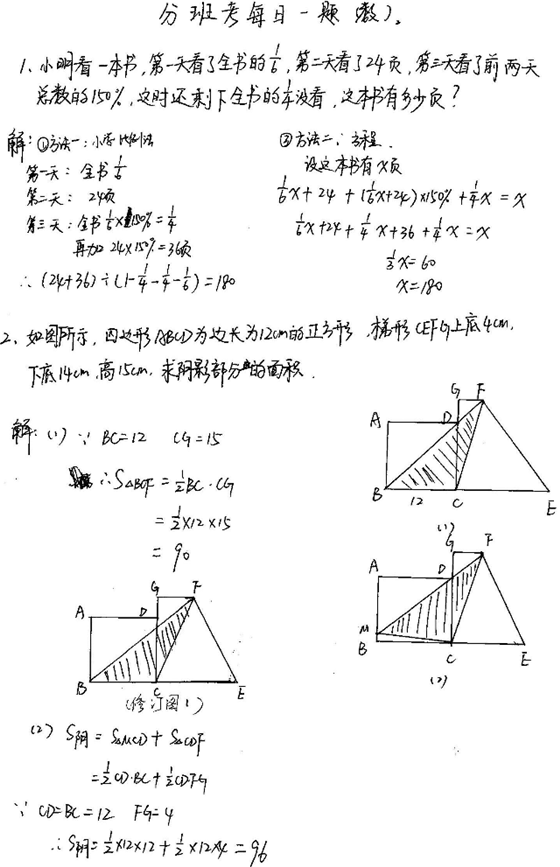 分班考每日一题(数)。
1、小明看一本书,第一天看了全书的1/6,第二天看了24页,第三天看了前两天
总数的150%,这时还剩下全书的1/4没看,这本书有多少页?
解:①方法一:小学比例法
第一天:全书1/6
第二天: 24页
第三天:全书1/6×150%=1/4
再加24×150%=36页
∴ (24+36)÷(1-1/4-1/4-1/6)=180
②方法二:方程.
设这本书有x页
1/6x+24+(1/6x+24)×150%+1/4x=x
1/6x+24+1/4x+36+1/4x=x
1/3x=60
x=180
2、如图所示,四边形ABCD为边长为12cm的正方形.梯形CEFG上底4cm,
下底14cm,高15cm,求阴影部分的面积.
解:(1)∵ BC=12 CG=15
∴S△BCF=1/2BC·CG
=1/2×12×15
=90
G F
A D
B 12 C E
(1)
G F
A D
M
B C E
(2)
G F
A D
B C E
(修订图1)
(2) S阴=S△MCD+S△CDF
=1/2CD·BC+1/2CD·FG
∵ CD=BC=12 FG=4
∴S阴=1/2×12×12+1/2×12×4=96